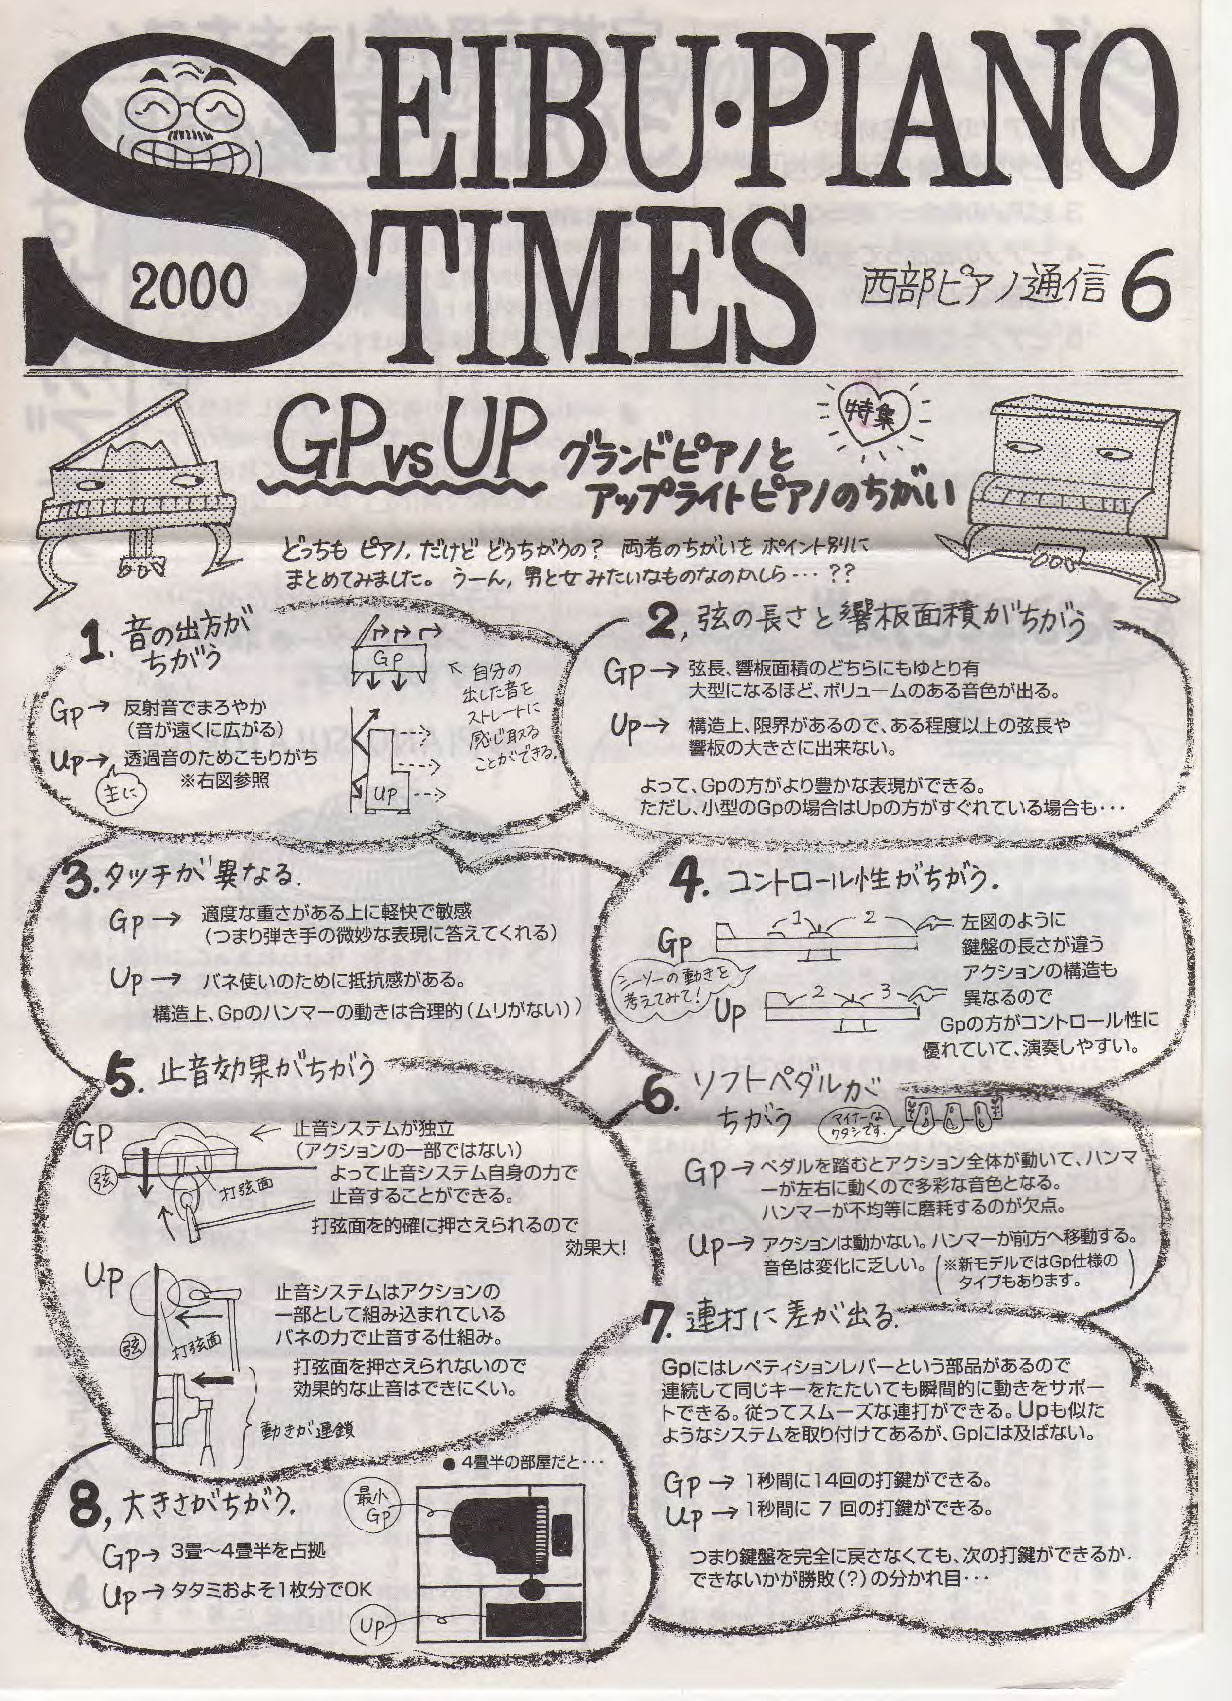 SEIBU・PIANO
TIMES
2000
西部ピアノ通信 6
GP vs UP
特集
グランドピアノと
アップライトピアノのちがい
どっちも ピアノ. だけど どうちがうの? 両者のちがいを ポイント別に
まとめてみました。 うーん, 男と女みたいなものなのかしら…??
1. 音の出方が
ちがう
Gp→ 反射音でまろやか
(音が遠くに広がる)
Up→ 透過音のためこもりがち
主に
※右図参照
Gp
↖ 自分の
出した音を
ストレートに
感じ取る
ことができる.
UP
2, 弦の長さと響板面積がちがう
Gp→ 弦長、響板面積のどちらにもゆとり有
大型になるほど、ボリュームのある音色が出る。
Up→ 構造上、限界があるので、ある程度以上の弦長や
響板の大きさに出来ない。
よって、Gpの方がより豊かな表現ができる。
ただし、小型のGpの場合はUpの方がすぐれている場合も・・・
3. タッチが異なる.
Gp→ 適度な重さがある上に軽快で敏感
(つまり弾き手の微妙な表現に答えてくれる)
Up→ バネ使いのために抵抗感がある。
構造上、Gpのハンマーの動きは合理的(ムリがない))
4. コントロール性がちがう.
Gp
1 2
シーソーの動きを
考えてみて!
Up
2 3
左図のように
鍵盤の長さが違う
アクションの構造も
異なるので
Gpの方がコントロール性に
優れていて、演奏しやすい。
5. 止音効果がちがう
GP
弦
打弦面
← 止音システムが独立
(アクションの一部ではない)
よって止音システム自身の力で
止音することができる。
打弦面を的確に押さえられるので
効果大!
Up
弦
打弦面
動きが連鎖
止音システムはアクションの
一部として組み込まれている
バネの力で止音する仕組み。
打弦面を押さえられないので
効果的な止音はできにくい。
6. ソフトペダルが
ちがう
マイナーな
ワタシです.
Gp→ ペダルを踏むとアクション全体が動いて、ハンマ
ーが左右に動くので多彩な音色となる。
ハンマーが不均等に磨耗するのが欠点。
Up→ アクションは動かない。ハンマーが前方へ移動する。
音色は変化に乏しい。(※新モデルではGp仕様の
タイプもあります。)
7. 連打に差が出る.
Gpにはレペティションレバーという部品があるので
連続して同じキーをたたいても瞬間的に動きをサポー
トできる。従ってスムーズな連打ができる。Upも似た
ようなシステムを取り付けてあるが、Gpには及ばない。
Gp→ 1秒間に14回の打鍵ができる。
Up→ 1秒間に 7 回の打鍵ができる。
つまり鍵盤を完全に戻さなくても、次の打鍵ができるか.
できないかが勝敗(?)の分かれ目・・・
8, 大きさがちがう.
Gp→ 3畳〜4畳半を占拠
Up→ タタミおよそ1枚分でOK
● 4畳半の部屋だと・・・
最小
Gp
Up